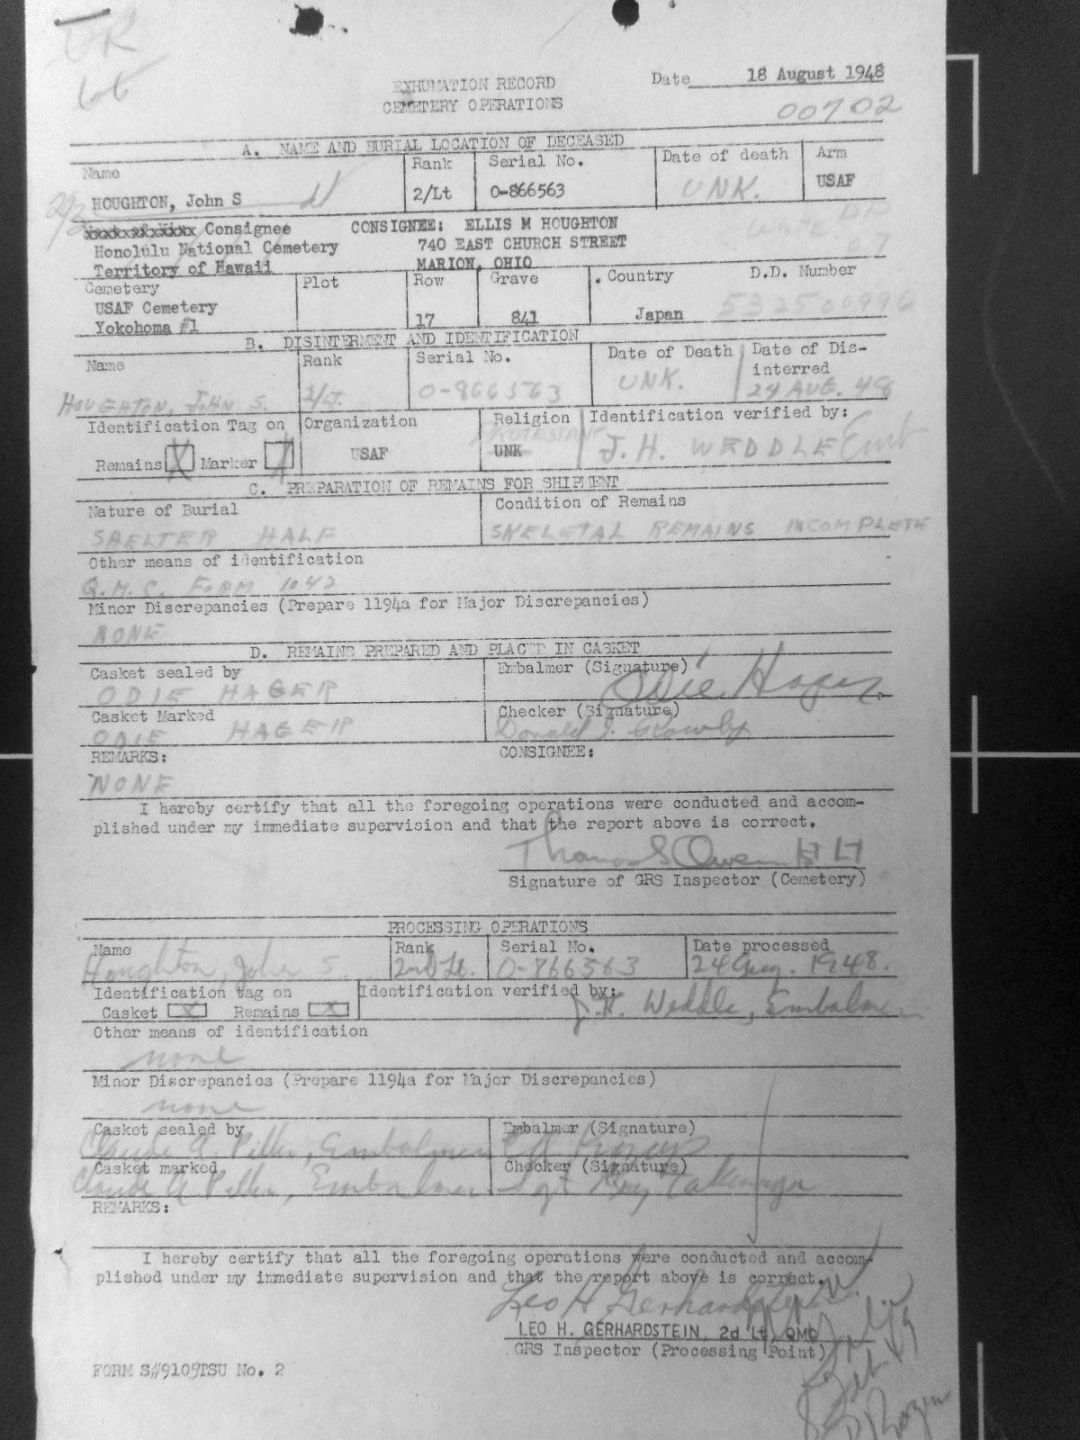 EXHUMATION RECORD
CEMETERY OPERATIONS
Date 18 August 1948
00702
A. NAME AND BURIAL LOCATION OF DECEASED
Name Rank Serial No. Date of death Arm
HOUGHTON, John S 2/Lt O-866563 UNK. USAF
Consignee CONSIGNEE: ELLIS M HOUGHTON
Honolulu National Cemetery 740 EAST CHURCH STREET
Territory of Hawaii MARION, OHIO
Cemetery Plot Row Grave Country D.D. Number
USAF Cemetery
Yokohoma #1 17 841 Japan
B. DISINTERMENT AND IDENTIFICATION
Name Rank Serial No. Date of Death Date of Dis-
interred
HOUGHTON, JOHN S. 2/LT. O-866563 UNK. 24 AUG. 48
Identification Tag on Organization Religion Identification verified by:
Remains X Marker X USAF PROTESTANT UNK J. H. WEDDLE Emb
C. PREPARATION OF REMAINS FOR SHIPMENT
Nature of Burial Condition of Remains
SHELTER HALF SKELETAL REMAINS INCOMPLETE
Other means of identification
Q.M.C. FORM 1042
Minor Discrepancies (Prepare 1194a for Major Discrepancies)
NONE
D. REMAINS PREPARED AND PLACED IN CASKET
Casket sealed by Embalmer (Signature)
ODIE HAGER Odie Hager
Casket Marked Checker (Signature)
ODIE HAGER Donald J.
REMARKS: CONSIGNEE:
NONE
I hereby certify that all the foregoing operations were conducted and accom-
plished under my immediate supervision and that the report above is correct.
Thomas S Owen
Signature of GRS Inspector (Cemetery)
PROCESSING OPERATIONS
Name Rank Serial No. Date processed
Houghton, John S. 2nd Lt. O-866563 24 Aug. 1948.
Identification tag on Identification verified by:
Casket X Remains X J. H. Weddle, Embalmer
Other means of identification
none
Minor Discrepancies (Prepare 1194a for Major Discrepancies)
none
Casket sealed by Embalmer (Signature)
Claude A. Embalmer
Casket marked Checker (Signature)
Claude A. Embalmer Sgt
REMARKS:
I hereby certify that all the foregoing operations were conducted and accom-
plished under my immediate supervision and that the report above is correct.
Leo H Gerhardstein
LEO H. GERHARDSTEIN, 2d Lt, QMC
GRS Inspector (Processing Point)
FORM S#9105TSU No. 2